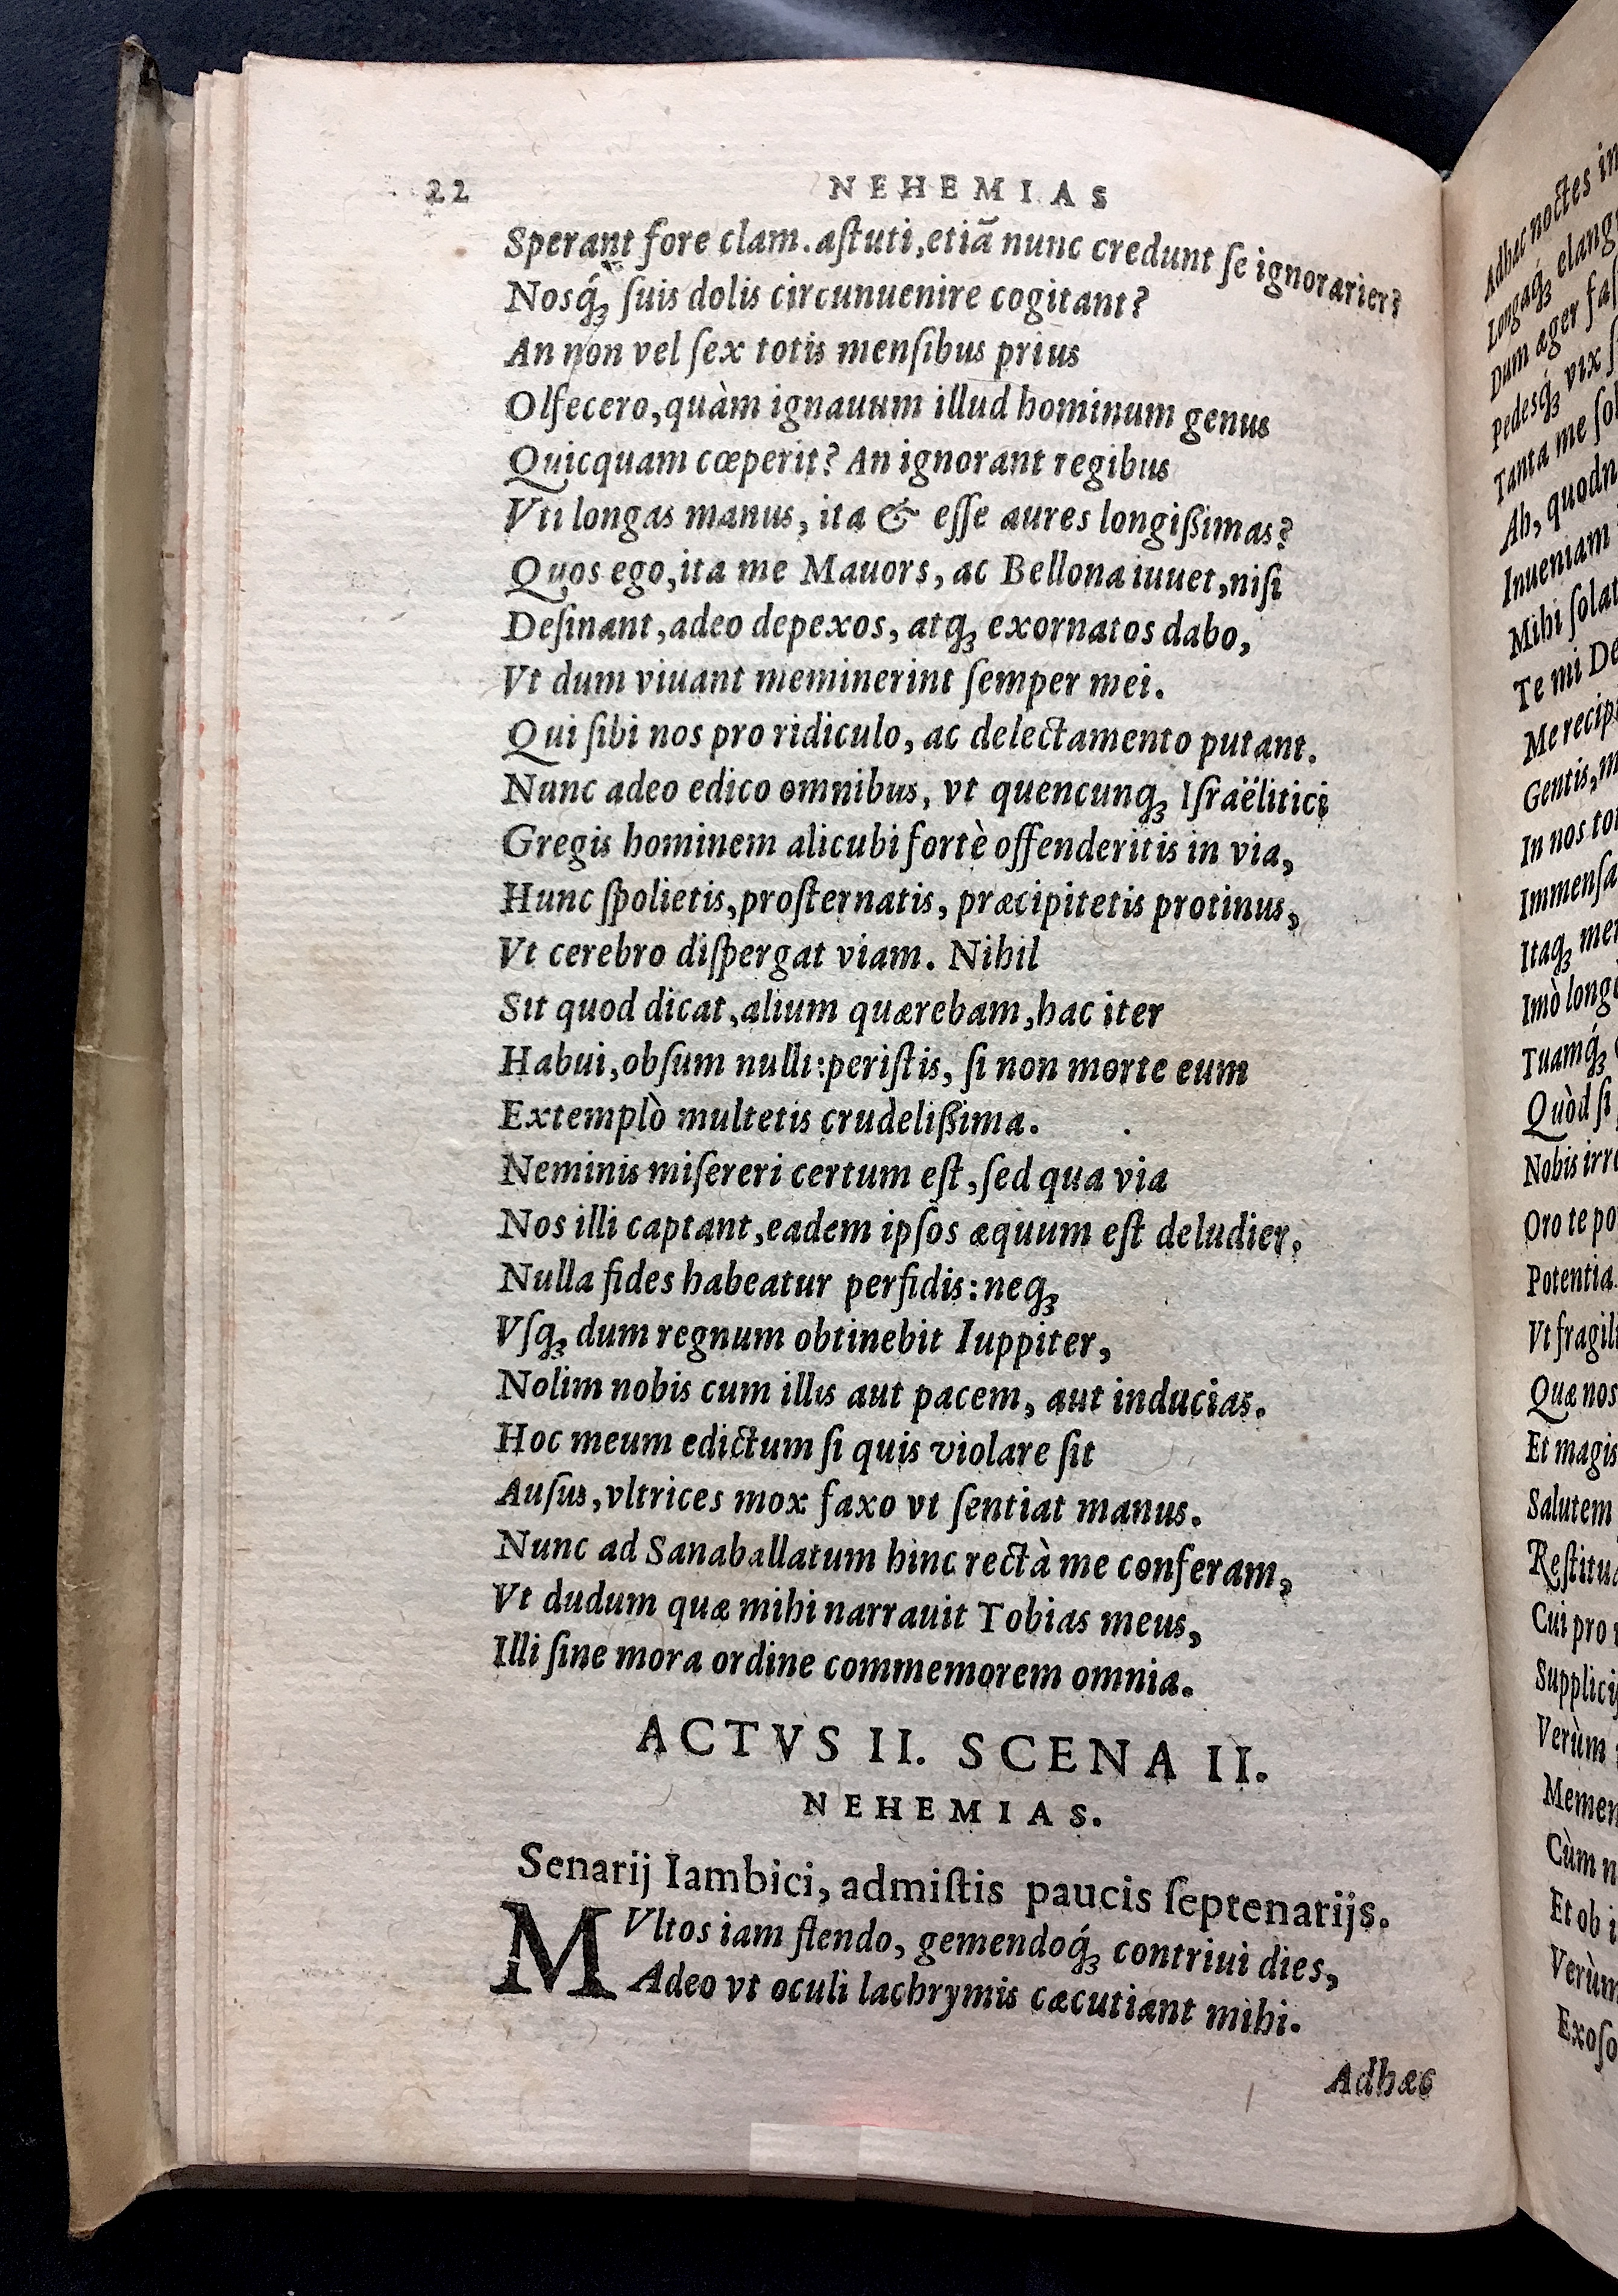 22 NEHEMIAS
Sperant fore clam. aſtuti, etiã nunc credunt ſe ignorarier?
Nosq́ꝫ ſuis dolis circunuenire cogitant?
An non vel ſex totis menſibus prius
Olfecero, quàm ignauum illud hominum genus
Quicquam cœperit? An ignorant regibus
Vti longas manus, ita & eſſe aures longißimas?
Quos ego, ita me Mauors, ac Bellona iuuet, niſi
Deſinant, adeo depexos, atqꝫ exornatos dabo,
Vt dum viuant meminerint ſemper mei.
Qui ſibi nos pro ridiculo, ac delectamento putant.
Nunc adeo edico omnibus, vt quencunqꝫ Iſraëlitici
Gregis hominem alicubi fortè offenderitis in via,
Hunc ſpolietis, proſternatis, præcipitetis protinus,
Vt cerebro diſpergat viam. Nihil
Sit quod dicat, alium quærebam, hac iter
Habui, obſum nulli: periſtis, ſi non morte eum
Extemplò multetis crudelißima.
Neminis miſereri certum eſt, ſed qua via
Nos illi captant, eadem ipſos æquum eſt deludier.
Nulla fides habeatur perfidis: neqꝫ
Vſqꝫ dum regnum obtinebit Iuppiter,
Nolim nobis cum illis aut pacem, aut inducias.
Hoc meum edictum ſi quis violare ſit
Auſus, vltrices mox faxo vt ſentiat manus.
Nunc ad Sanaballatum hinc rectà me conferam,
Vt dudum quæ mihi narrauit Tobias meus,
Illi ſine mora ordine commemorem omnia.
ACTVS II. SCENA II.
NEHEMIAS.
Senarij Iambici, admiſtis paucis ſeptenarijs.
MVltos iam flendo, gemendoq́ꝫ contriui dies,
Adeo vt oculi lachrymis cæcutiant mihi.
Adhæc
Adhæc noctes in
Longaq́ꝫ elang
Dum æger
Pedesq́ꝫ vix
Tanta me
Ah, quodn
Inueniam
Mihi ſolat
Te mi De
Me recip
Gentis, m
In nos to
Immenſa
Itaqꝫ me
Imò long
Tuamq́ꝫ
Quòd ſi
Nobis irr
Oro te po
Potentia
Vt fragil
Quæ nos
Et magis
Salutem
Reſtitu
Cui pro
Supplici
Verùm
Memen
Cùm n
Et ob i
Verùm
Exoſo